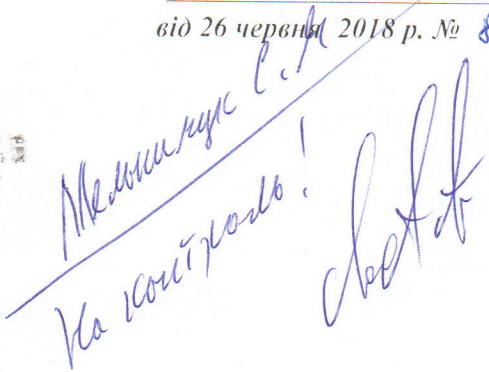 від 26 червня 2018 р. № 8
Мельничук С. М
На контроль!